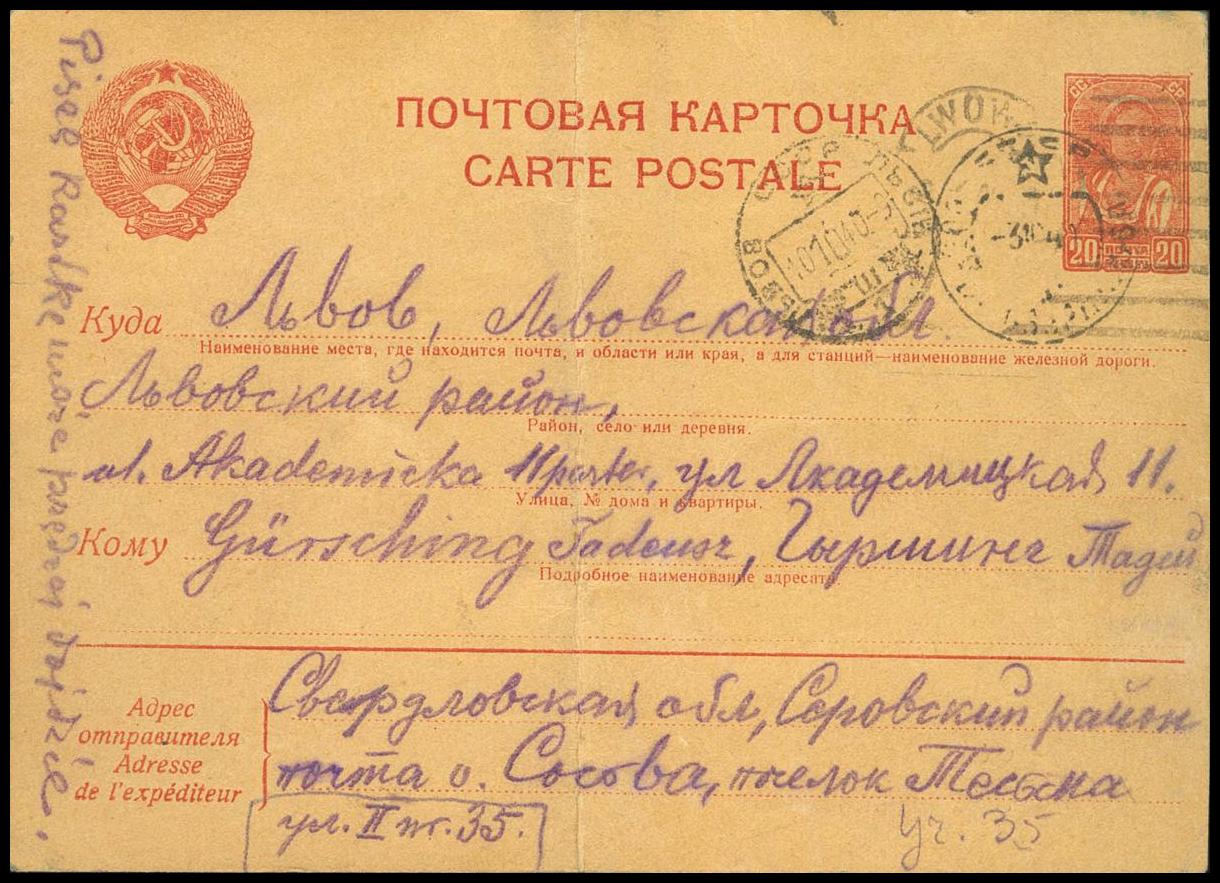 ПОЧТОВАЯ КАРТОЧКА
CARTE POSTALE
СС СР
20 ПОЧТА 20
LWOW
Куда Львов, Львовская обл.
Наименование места, где находится почта, и области или края, а для станций—наименование железной дороги.
Львовский район,
Район, село или деревня.
ul. Akademicka 11 parter, ул Академицкая 11.
Улица, № дома и квартиры.
Кому Gürsching Tadeusz, Гыршинг Тадей
Подробное наименование адресата.
Адрес
отправителя
Adresse
de l'expéditeur
Свердловская обл, Серовский район
почта о. Сосова, посёлок Тесьма
ул. II уч. 35.
уч. 35
Piszę Kartkę może prędzej dojdzie.